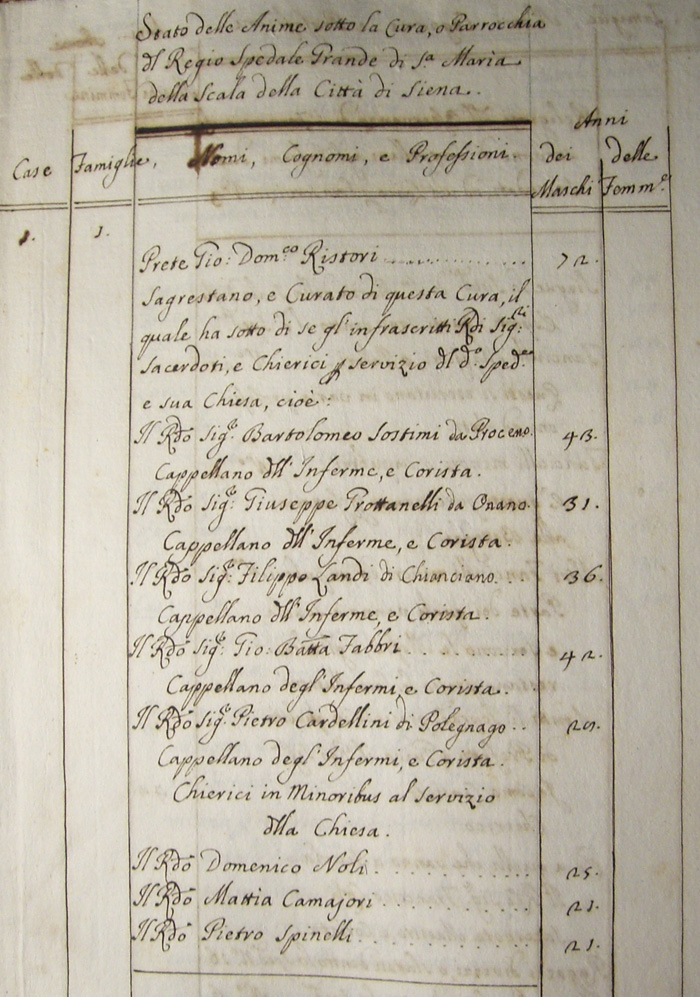 Stato delle Anime sotto la Cura, o Parrocchia
dl Regio Spedale Grande di Sa. Maria
della Scala della Città di Siena.
Case Famiglie, Nomi, Cognomi, e Professioni. Anni dei Maschi delle Femme.
1. 1.
Prete Gio: Domco. Ristori 72.
Sagrestano, e Curato di questa Cura, il
quale ha sotto di se gl'infrascritti Rdi Sigri:
Sacerdoti, e Chierici p servizio dl do. Sped.
e sua Chiesa, cioè:
Il Rdo Sigr. Bartolomeo Sostimi da Proceno. 43.
Cappellano dll'Inferme, e Corista.
Il Rdo Sigr: Giuseppe Grottanelli da Onano. 31.
Cappellano dll'Inferme, e Corista.
Il Rdo Sigr: Filippo Landi di Chianciano 36.
Cappellano dll'Inferme, e Corista.
Il Rdo Sigr: Gio: Batta Fabbri 42.
Cappellano degl'Infermi, e Corista.
Il Rdo Sigr. Pietro Cardellini di Polegnago
Cappellano degl'Infermi, e Corista.
Chierici in Minoribus al servizio
dlla Chiesa.
Il Rdo Domenico Noli 25.
Il Rdo Mattia Camajori 21.
Il Rdo Pietro Spinelli 21.